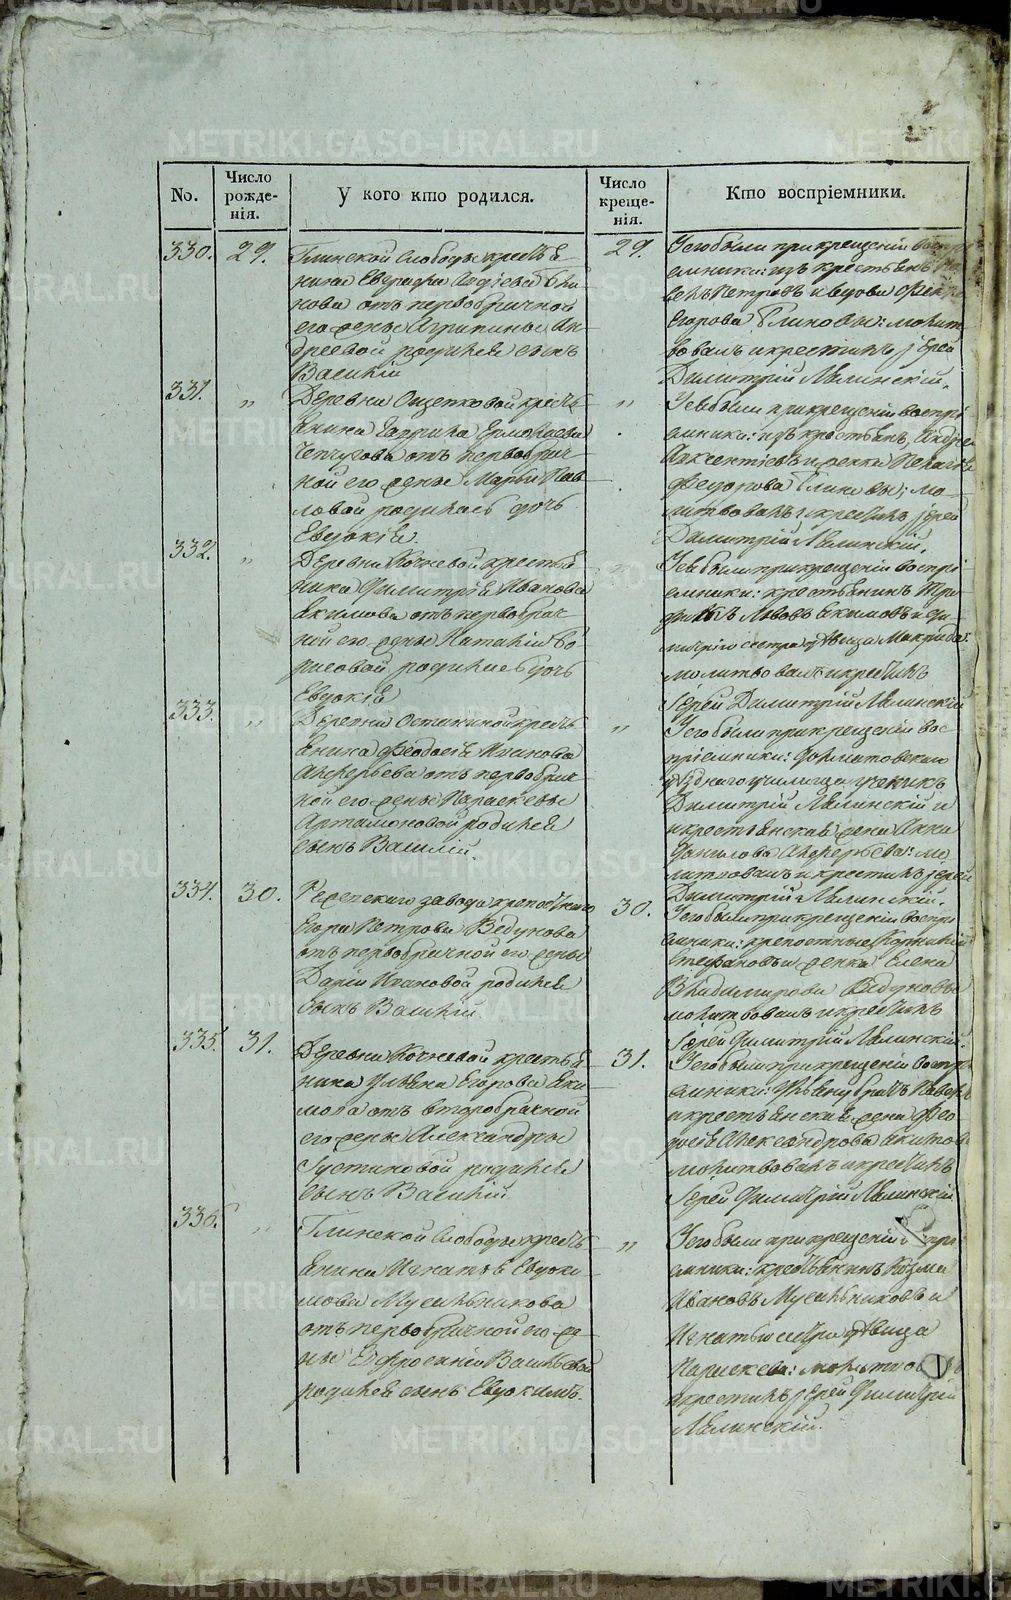 METRIKI.GASO-URAL.RU
No.
Число рожде-нія.
У кого кто родился.
Число креще-нія.
Кто воспріемники.
330.
29.
Глинской Слободы крестья
нина Авдіева Бли
нова отъ первобрачной
его жены Агрипины Ан
дреевой родился сынъ
Василій
29.
У его были при крещеніи воспрі
емники: изъ крестьянъ
Петровъ и вдова
Егорова Блиновы: молит
вовалъ и крестилъ іерей
Димитрій Малинскій.
331.
"
Деревни Ощепковой кресть
янина Гаврила Ермолаева
Чепчугова отъ первобрач
ной его жены Марьи Пав
ловой родилась дочь
Евдокія.
"
У ея были при крещеніи воспрі
емники: изъ крестьянъ, Андрей
и женка Пелагея
Федорова Блиновы; мо
литвовалъ и крестилъ іерей
Димитрій Малинскій.
332.
"
Деревни Кочневой крестья
нина Димитрія Иванова
Екимова отъ первобрач
ной его жены Наталіи Бо
рисовой родилась дочь
Евдокія
У ея были при крещеніи воспрі
емники: крестьянинъ Три
филъ Львовъ Екимовъ и Ди
митрія сестра дѣвица Макрида:
молитвовалъ и крестилъ
Іерей Димитрій Малинскій
333.
"
Деревни Останиной кресть
янина Феодосія Иванова
Алферьева отъ первобрач
ной его жены Параскевы
Артамоновой родился
сынъ Василій.
"
У его были при крещеніи вос
пріемники: Долматовскаго
уѣзднаго училища ученикъ
Димитрій Малинскій и
крестьянская жена Анна
Данилова Алферьева: мо
литвовалъ и крестилъ іерей
Димитрій Малинскій.
334.
30.
завода крепостнаго
Егора Петрова Ведунова
отъ первобрачной его жены
Даріи Ивановой родился
сынъ Василій.
30.
У его были при крещеніи воспрі
емники: крепостные Корнилій
Стефановъ и женка Елена
Владимірова Ведуновы
молитвовалъ и крестилъ
Іерей Димитрій Малинскій.
335.
31.
Деревни Кочневой крестья
нина Ульяна Егорова Еки
мова отъ второбрачной
его жены Александры
Густиновой родился
сынъ Василій.
31.
У его были при крещеніи воспрі
емники:
и крестьянская жена Фео
досія Александрова Екимова
молитвовалъ и крестилъ
Іерей Димитрій Малинскій
336.
"
Глинской Слободы кресть
янина Игнатья Евдоки
мова Мусильникова
отъ первобрачной его же
ны Евфросиніи Васильевой
родился сынъ Евдокимъ.
"
У его были при крещеніи
емники: крестьянинъ Козма
Ивановъ Мусильниковъ и
Игнатью сестра дѣвица
Параскева:
крестилъ Іерей Димитрій
Малинскій.